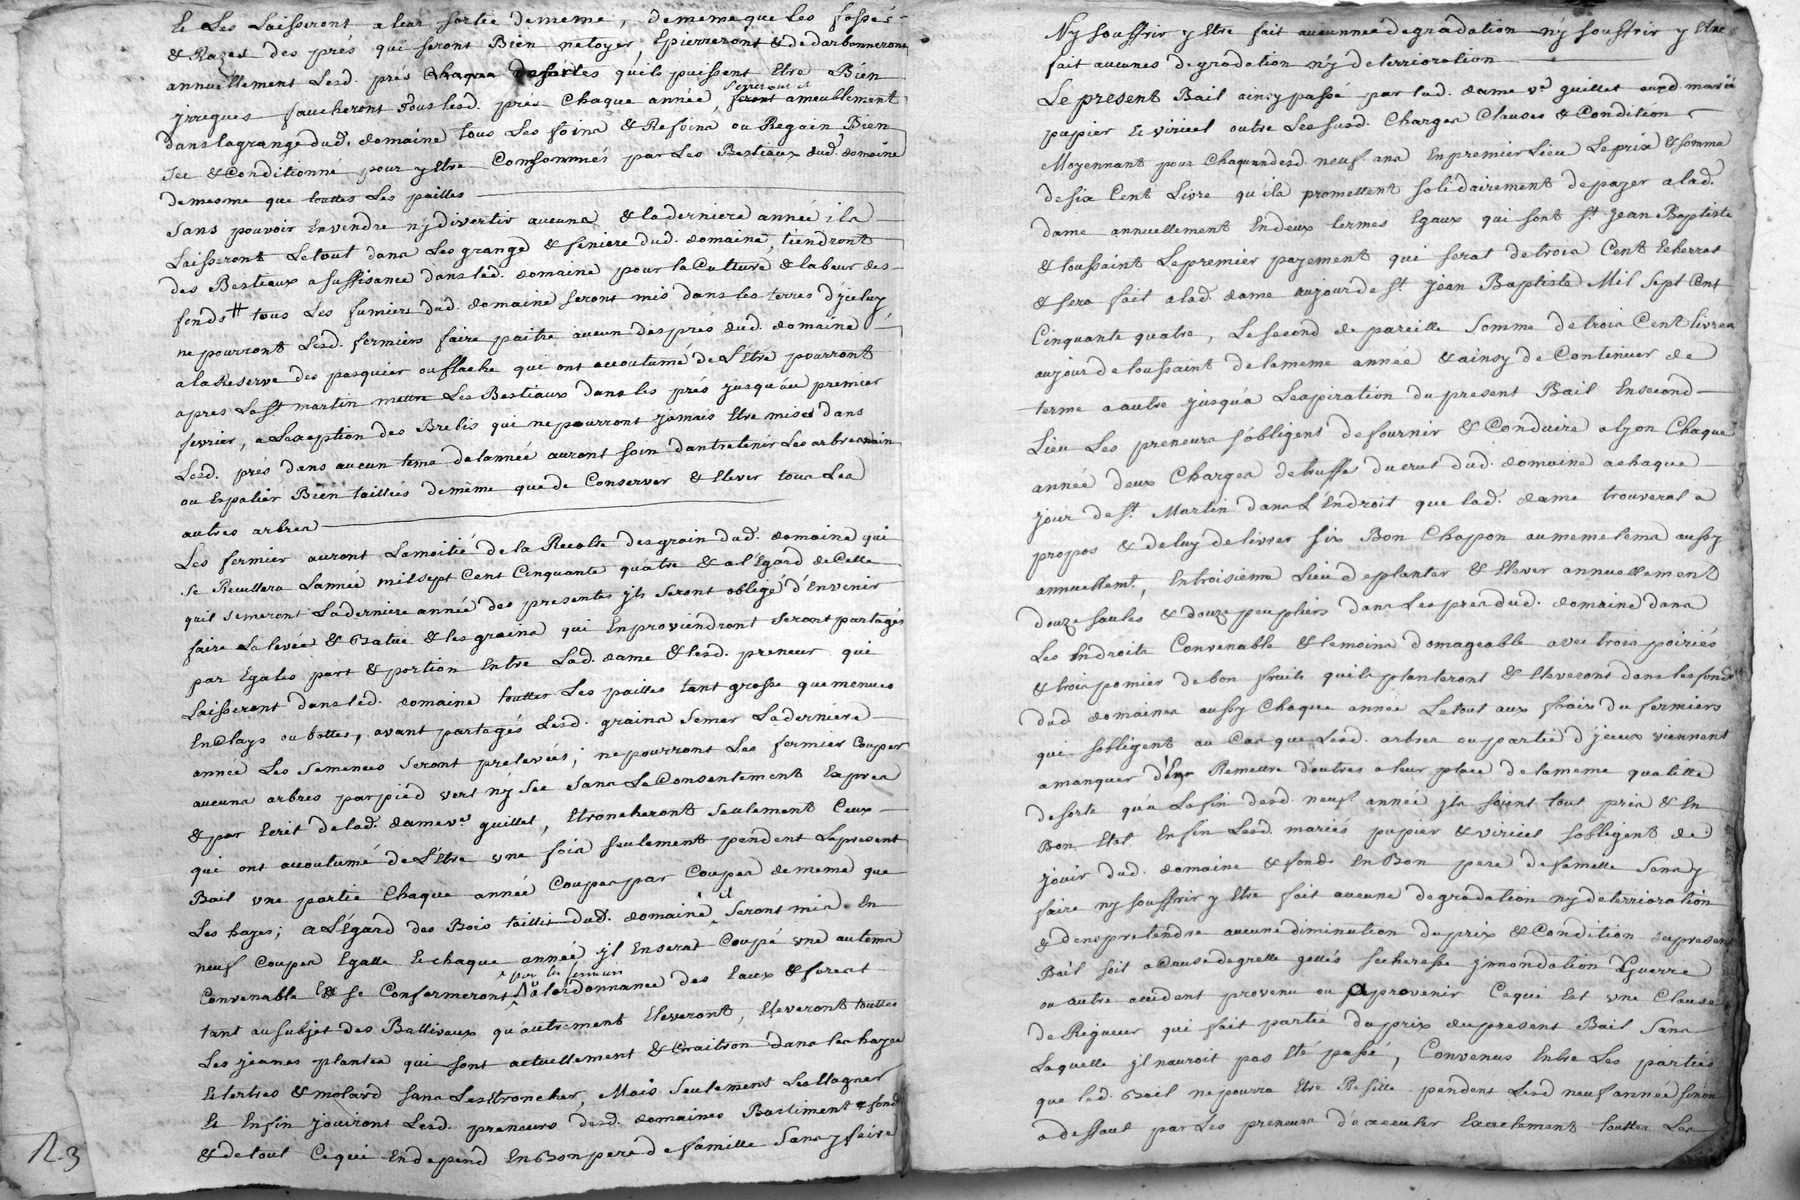 et Les Laisseront a leur sortie de meme, de meme que Les fossés
& Razes des prés qui seront Bien netoyer, Epierreront & dedarbonneront
annuellement Lesd. prés chaque de sortes qu'ils puissent Etre Bien
yrregues faucheront tous lesd. prés chaque année, ameublement
dans la grange dud. domaine tous Les foins & Refoins ou Regain Bien
sec & Conditionné pour y Etre Consommés par Les Bestiaux dud. domaine
de mesme que touttes Les pailles
sans pouvoir En vendre n'y divertir aucuns & la derniere année ils
Laisseront Le tout dans Les grange & feniere dud. domaine, tiendront
des Bestiaux a suffisance dans led. domaine pour la Culture & labeur des
fonds # tous Les fumiers dud. domaine seront mis dans les terres d'jceluy
ne pourront Lesd. fermiers faire paitre aucun des prés dud. domaine
a la Reserve des pasquier ou flache qui ont accoutumé de L'être pourront
apres La St. martin mettre Les Bestiaux dans les prés jusqu'au premier
fevrier, a Lexeption des Brebis qui ne pourront jamais Etre mises dans
Lesd. prés dans aucun tems de lannée auront soin dantretenir Les arbres nain
ou Espalier Bien taillées de même que de Conserver & Elever tous Les
autres arbres
Les fermier auront La moitié de la Recolte des grain dud. domaine qui
se Recultera Lannée mil sept Cent Cinquante quatre & a l'Egard de Celle
qu'il semeront La derniere année des presentes jls seront obligé d'En venir
faire La levée & Batue & les grains qui En proviendront seront partagés
par Egales part & portion Entre Lad. dame & lesd. preneur qui
Laisseront dans led. domaine touttes Les pailles tant grosse que menues
En clays ou bottes, avant partagés Lesd. grains semer La derniere
année Les semences seront prelevées; ne pourront Les fermier Couper
aucuns arbres par pied vert n'y sec sans Le Consentement Expres
& par Ecrit de lad. dame ve. guillet, Etroncheront seulement Ceux
qui ont accoutumé de L'Etre une fois seulement pendent Le present
Bail une partie Chaque année Coupes par Coupes de meme que
Les hayes; a L'Egard des Bois taillis dud. domaine, seront mis En
neuf Coupes Egalle Et chaque année jl En serat Coupé une au tems
Convenable Et se Conformeront par les fermiers a lordonnance des Eaux & forest
tant au subjet des Ballivaux qu'autrement Eleveront, Eleveront touttes
Les jeunes plantes qui sont actuellement & Craitron dans les hayes
Et tertres & molard sans Les Etroncher, Mais seulement Les Elaguer
Et Enfin jouiront Lesd. preneurs desd. domaines Bastiment & fond
& de tout Ce qui En depend En Bon pere de famille sans y faire
12.3
N'y souffrir y Etre fait aucunne degradation n'y souffrir y Etre
fait aucunes degradation n'y deterrioration
Le present Bail ainsy passé par lad. dame ve. guillet auxd mariés
pupier et viricel outre Les susd. Charges Clauses & Condition
Moyennant pour Chaqunn desd. neuf ans En premier Lieu Le prix & somme
de six Cent Livre qu'ils promettent solidairement de payer a lad.
dame annuellement En deux termes Egaux qui sont St. Jean Baptiste
& toussaint Le premier payement qui serat de trois Cent Echerrat
& sera fait a lad. dame au jour de St. jean Baptiste Mil Sept Cent
Cinquante quatre, Le second de pareille somme de trois Cent livres
au jour de toussaint de la meme année & ainsy de Continuer de
terme a autre jusqu'a Lexpiration du present Bail En second
Lieu Les preneurs s'obligent de fournir & Conduire a lyon Chaque
année deux Charges de truffe du crut dud. domaine a chaque
jour de St. Martin dans L'Endroit que lad. dame trouverat a
propos & de luy delivrer six Bon Chapon au meme tems aussy
annuellemt., En troisieme Lieu de planter & Elever annuellement
douze saules & douze peupliers dans Les prés dud. domaine dans
Les Endroits Convenable & le moins domageable avec trois poiriés
& trois pomier de bon fruits qu'ils planteront & Eleveront dans les fond
dud. domaines aussy Chaque année Le tout aux fraix du fermiers
qui sobligent au Cas que Lesd. arbres ou partie d'jceux viennent
a manquer d'En Remettre d'autres a leur place de la meme qualitte
de sorte qu'a La fin desd. neuf année jls soient tout pris & En
Bon Etat Enfin Lesd. mariés pupier & viricel sobligent de
jouir dud. domaine & fonds En Bon pere de famelle sans y
faire n'y souffrir y Etre fait aucune degradation n'y deterrioration
& denepretendre aucune diminution du prix & Condition du present
Bail soit a Cause de grelle gellés secheresse jnnondation Guerre
ou autre accident provenu ou a provenir Ce qui Est une Clause
de Rigueur qui fait partie du prix du present Bail Sans
Laquelle jl n'auroit pas Eté passé, Convenus Entre Les parties
que led. Bail ne pourra Etre Resillé pendent Lesd neuf année sinon
a deffaut par Les preneurs d'acecuter Exactement touttes Les